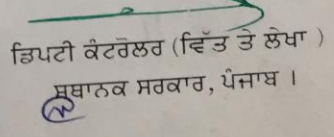 ਡਿਪਟੀ ਕੰਟਰੋਲਰ (ਵਿੱਤ ਤੇ ਲੇਖਾ )
ਸਥਾਨਕ ਸਰਕਾਰ, ਪੰਜਾਬ ।